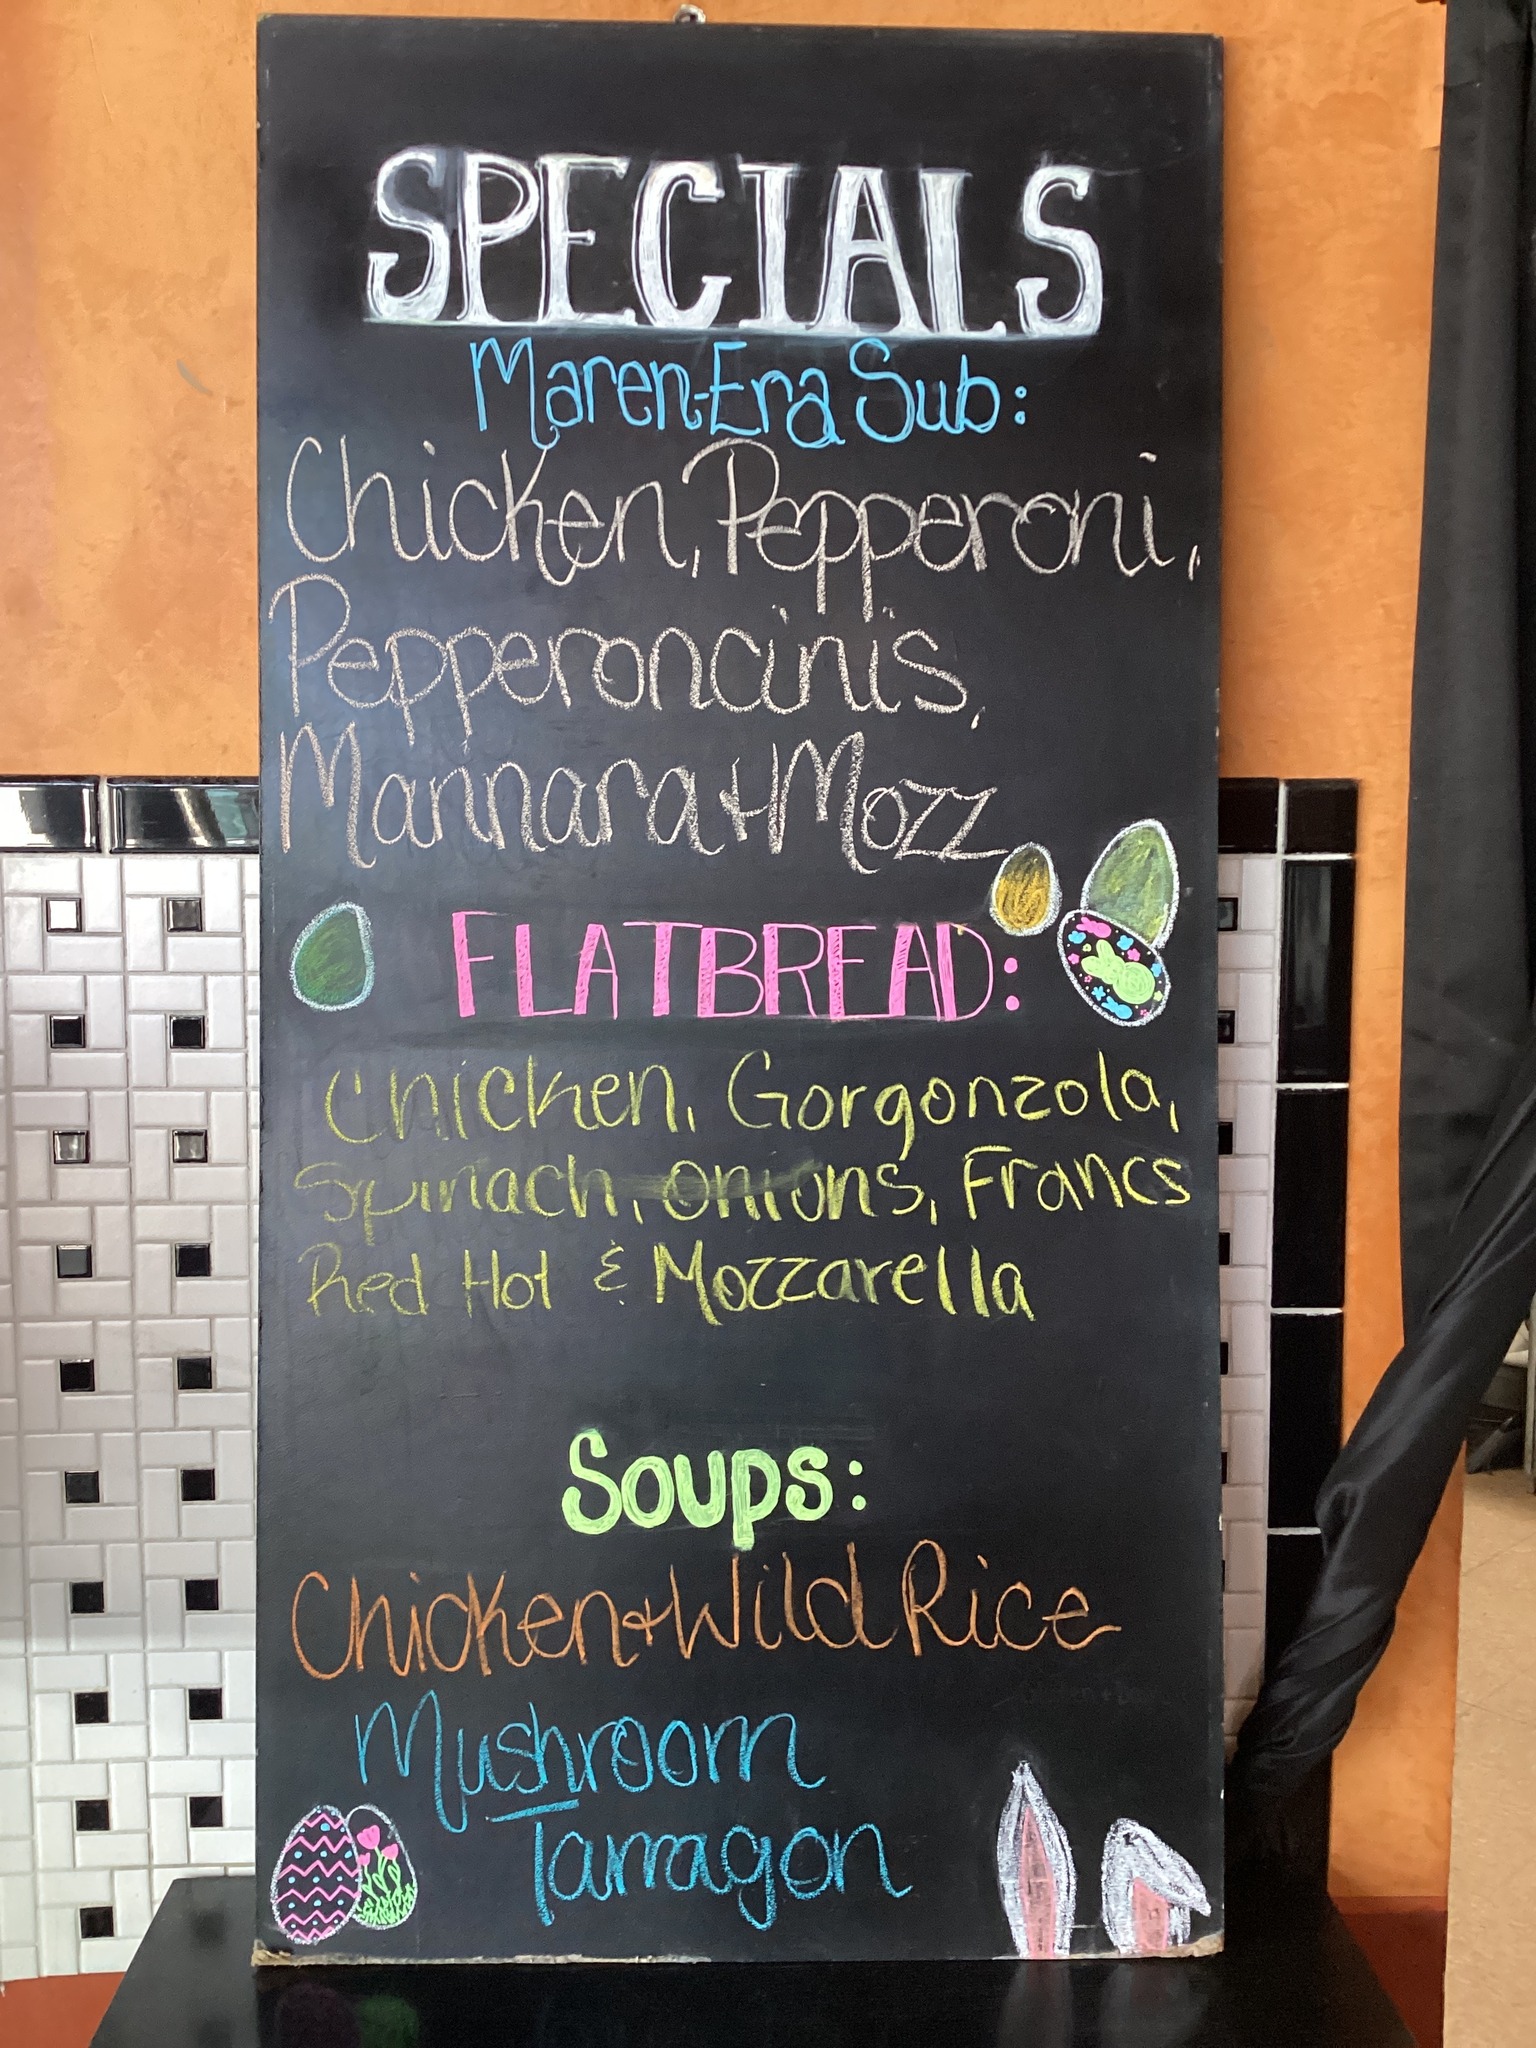 SPECIALS
Maren-Era Sub:
Chicken, Pepperoni,
Pepperoncinis,
Marinara + Mozz
FLATBREAD:
Chicken, Gorgonzola,
Spinach, onions, Francs
Red Hot & Mozzarella
Soups:
Chicken + Wild Rice
Mushroom
Tarragon